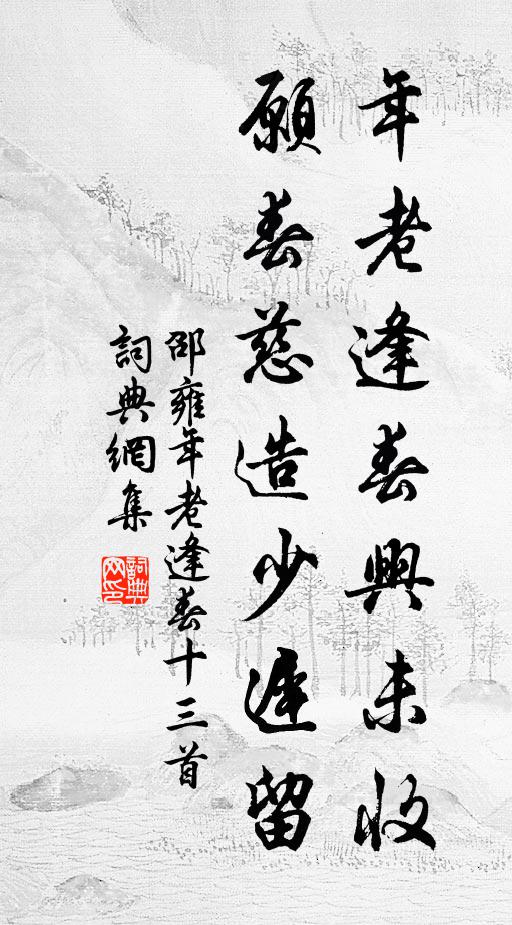 年老逢春興未收
願春慈造少遲留
邵雍年老逢春十三首
詞典網集
詞典网印